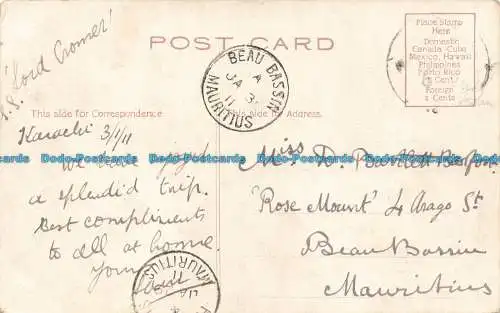 S.S. 'Lord Cromer'
POST CARD
Place Stamp
Here
Domestic
Canada, Cuba
Mexico, Hawaii
Philippines
Porto Rico
1 Cent
Foreign
2 Cents
BEAU BASSIN
A
JA 3
11
MAURITIUS
This side for Correspondence
This side for Address.
Karachi 3/1/11
We have
a splendid trip.
Best compliments
to all at home.
Yours
Miss D. Bartlett
'Rose Mount' 4 Arago St
Beau Bassin
Mauritius
MAURITIUS
JA
11
Dodo-Postcards Dodo-Postcards Dodo-Postcards Dodo-Postcards